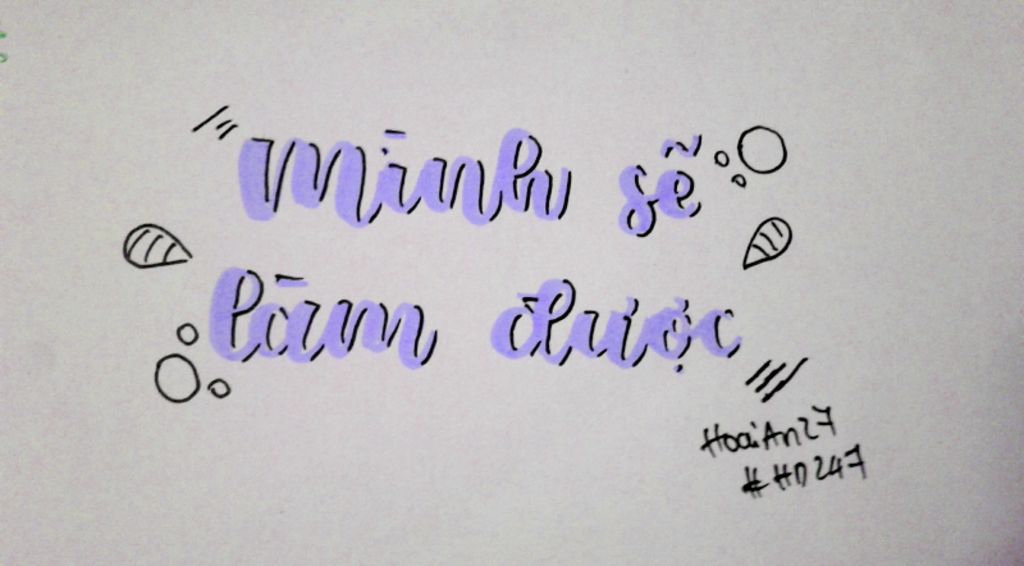 mình sẽ
làm được
HoaiAn27
#HD247